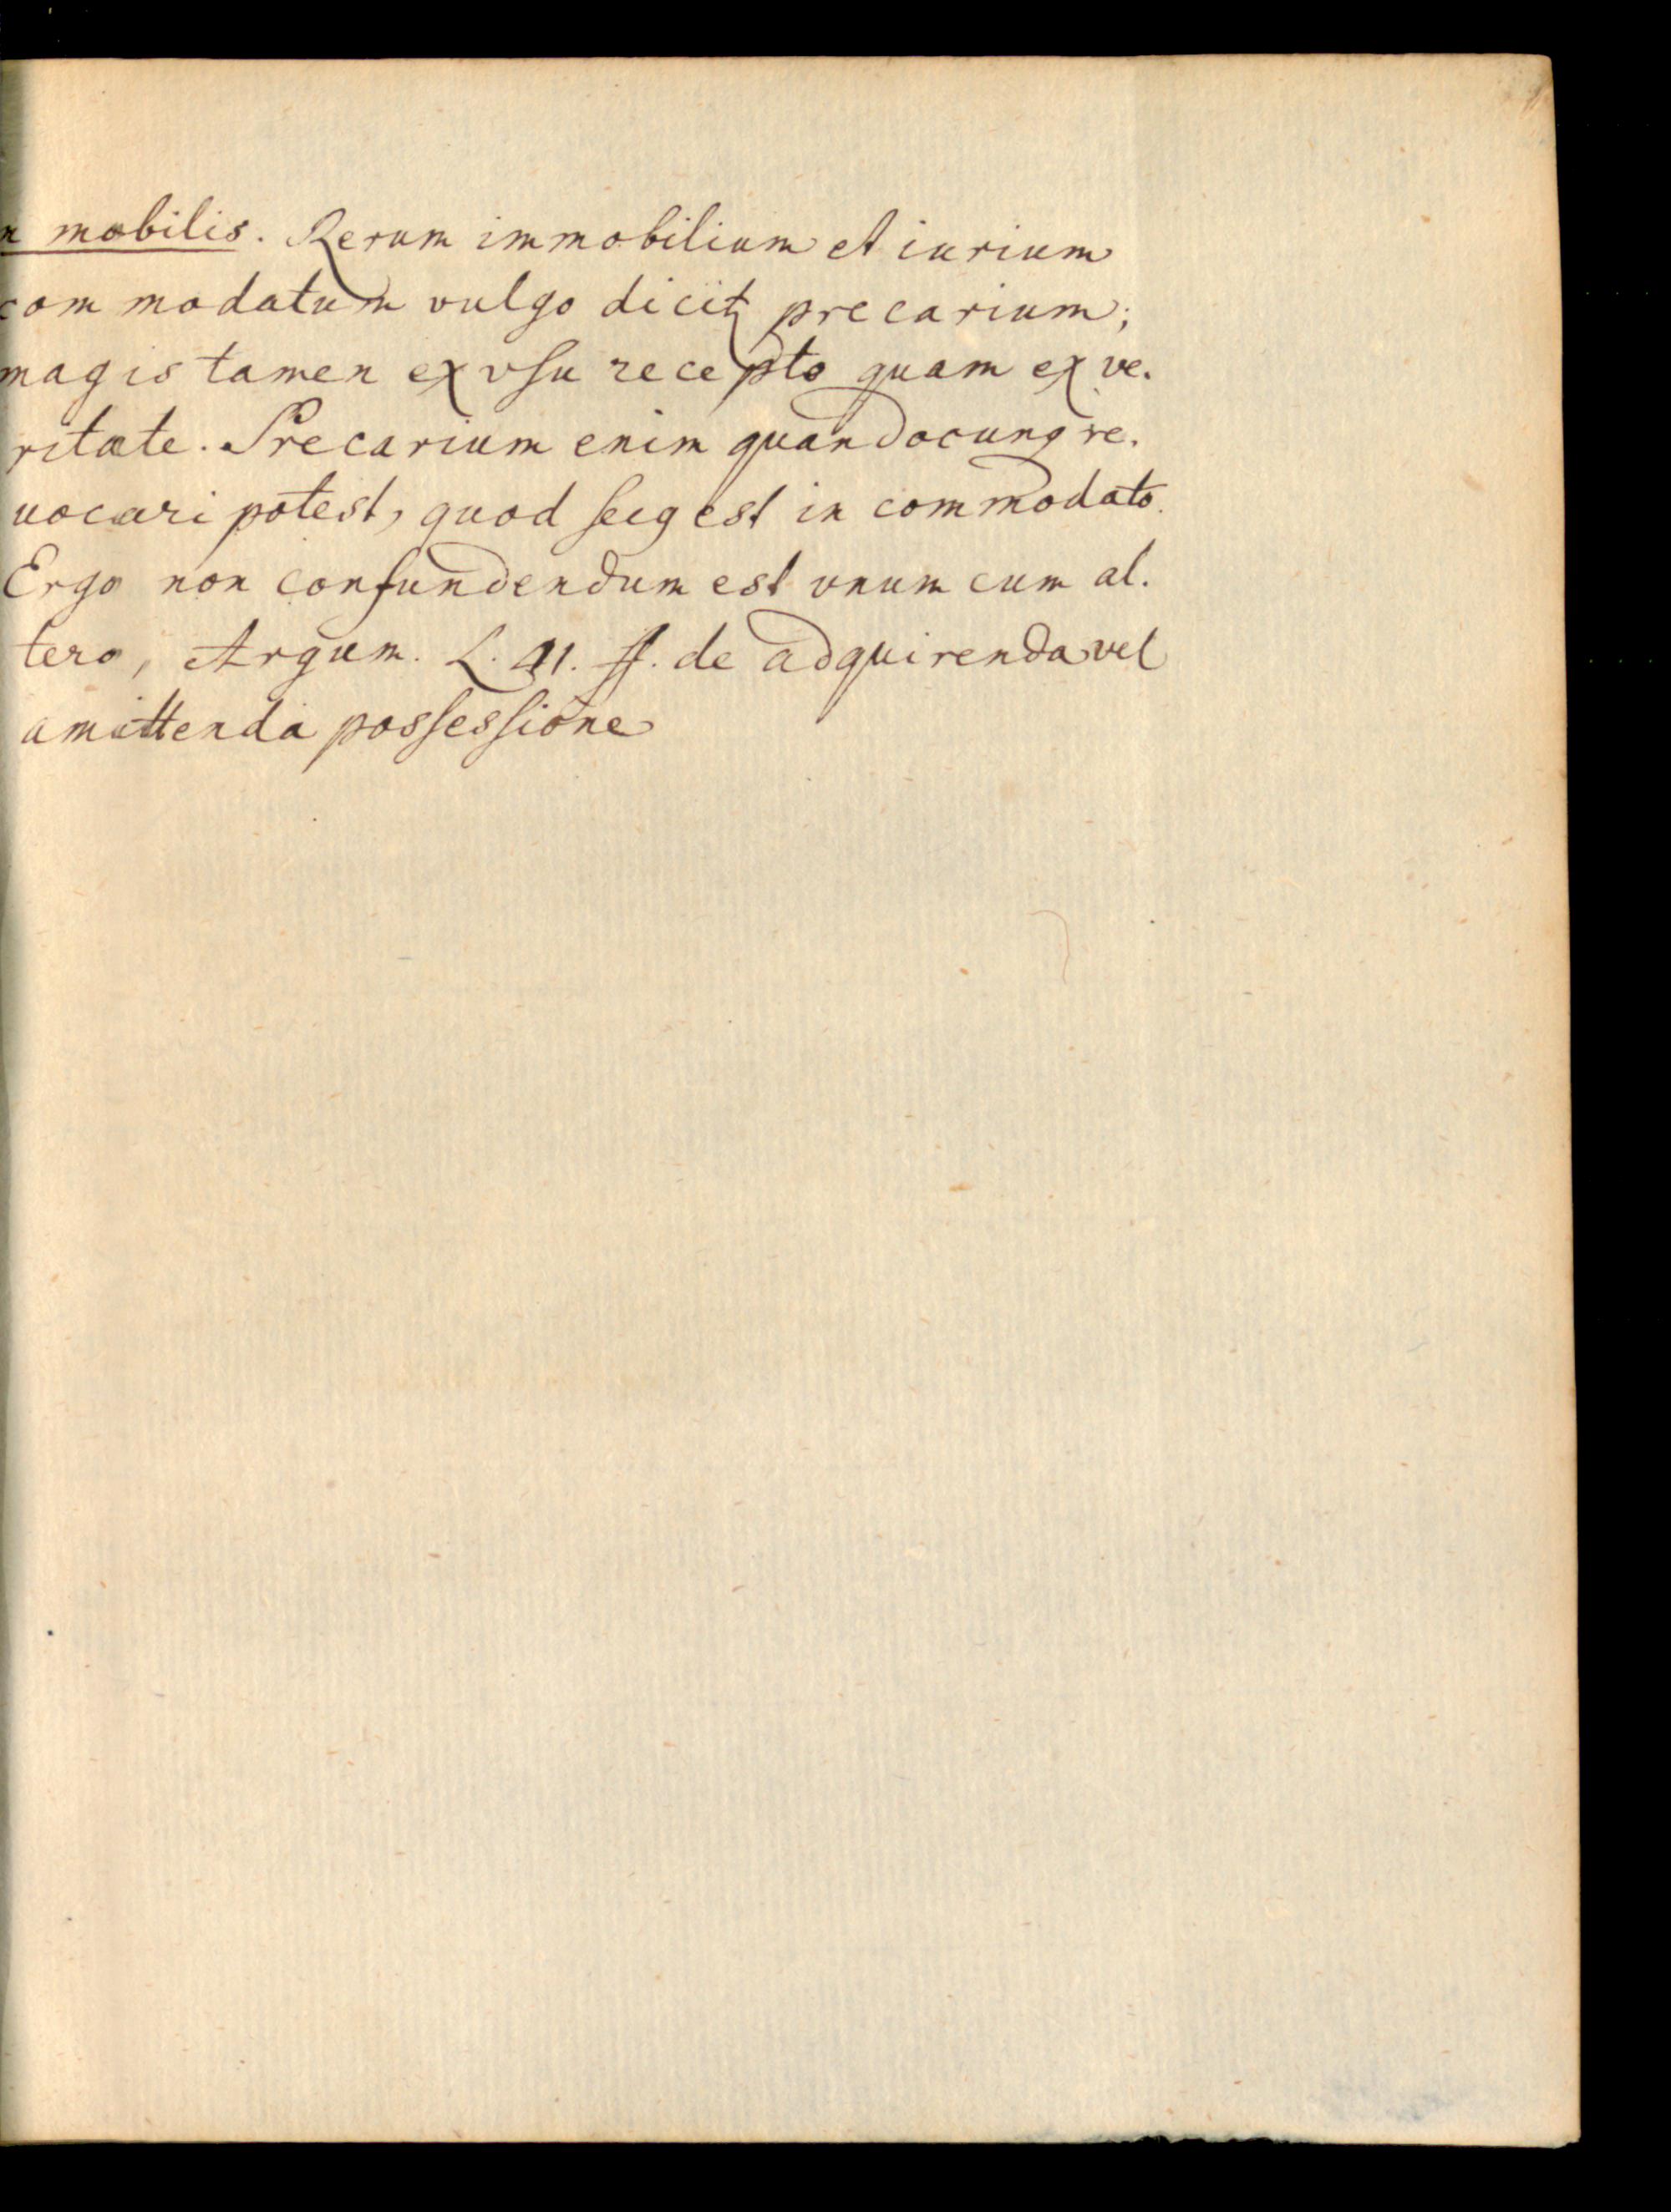 mobilis. Rerum immobilium et iurium
commodatum vulgo dicitꝛ precarium;
magis tamen ex vſu recepto quam ex ve.
ritate. Precarium enim quandocunqꝫ re.
uocari potest, quod ſecꝰ est in commodato.
Ergo non confundendum est vnum cum al.
tero, Argum. L. 41. ff. de adquirenda vel
amittenda posſesſione